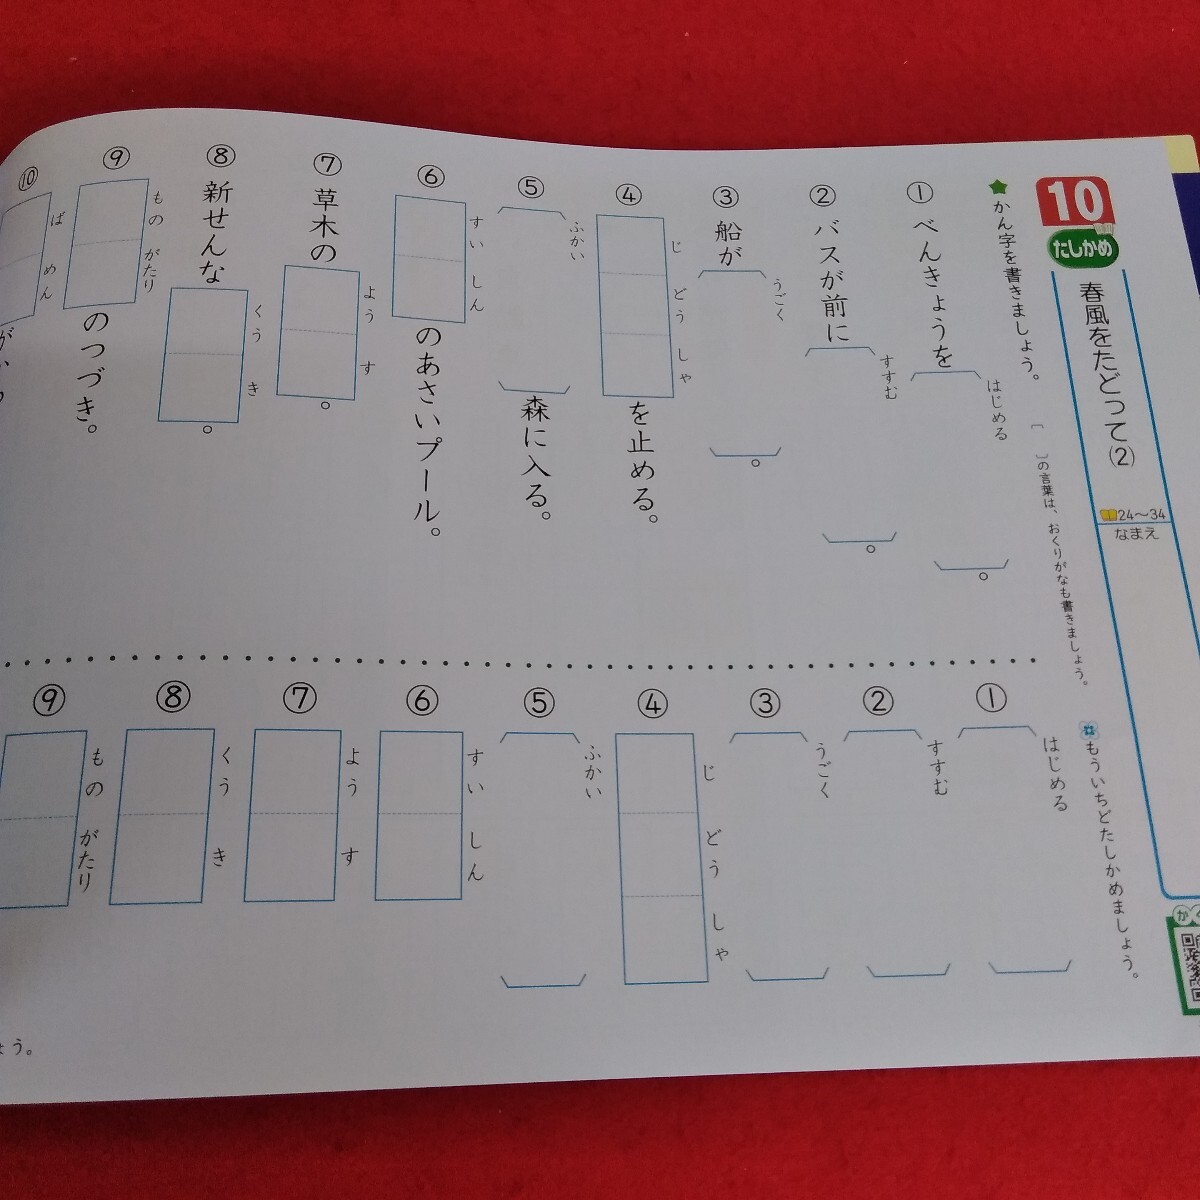 10
たしかめ
春風をたどって(2)
24〜34
なまえ
★かん字を書きましょう。
〔 〕の言葉は、おくりがなも書きましょう。
① べんきょうを〔はじめる〕。
② バスが前に〔すすむ〕。
③ 船が〔うごく〕。
④ じどうしゃ を止める。
⑤ 〔ふかい〕森に入る。
⑥ すいしん のあさいプール。
⑦ 草木の ようす 。
⑧ 新せんな くうき 。
⑨ ものがたり のつづき。
⑩ ばめん
もういちどたしかめましょう。
① はじめる
② すすむ
③ うごく
④ じどうしゃ
⑤ ふかい
⑥ すいしん
⑦ ようす
⑧ くうき
⑨ ものがたり
ょう。